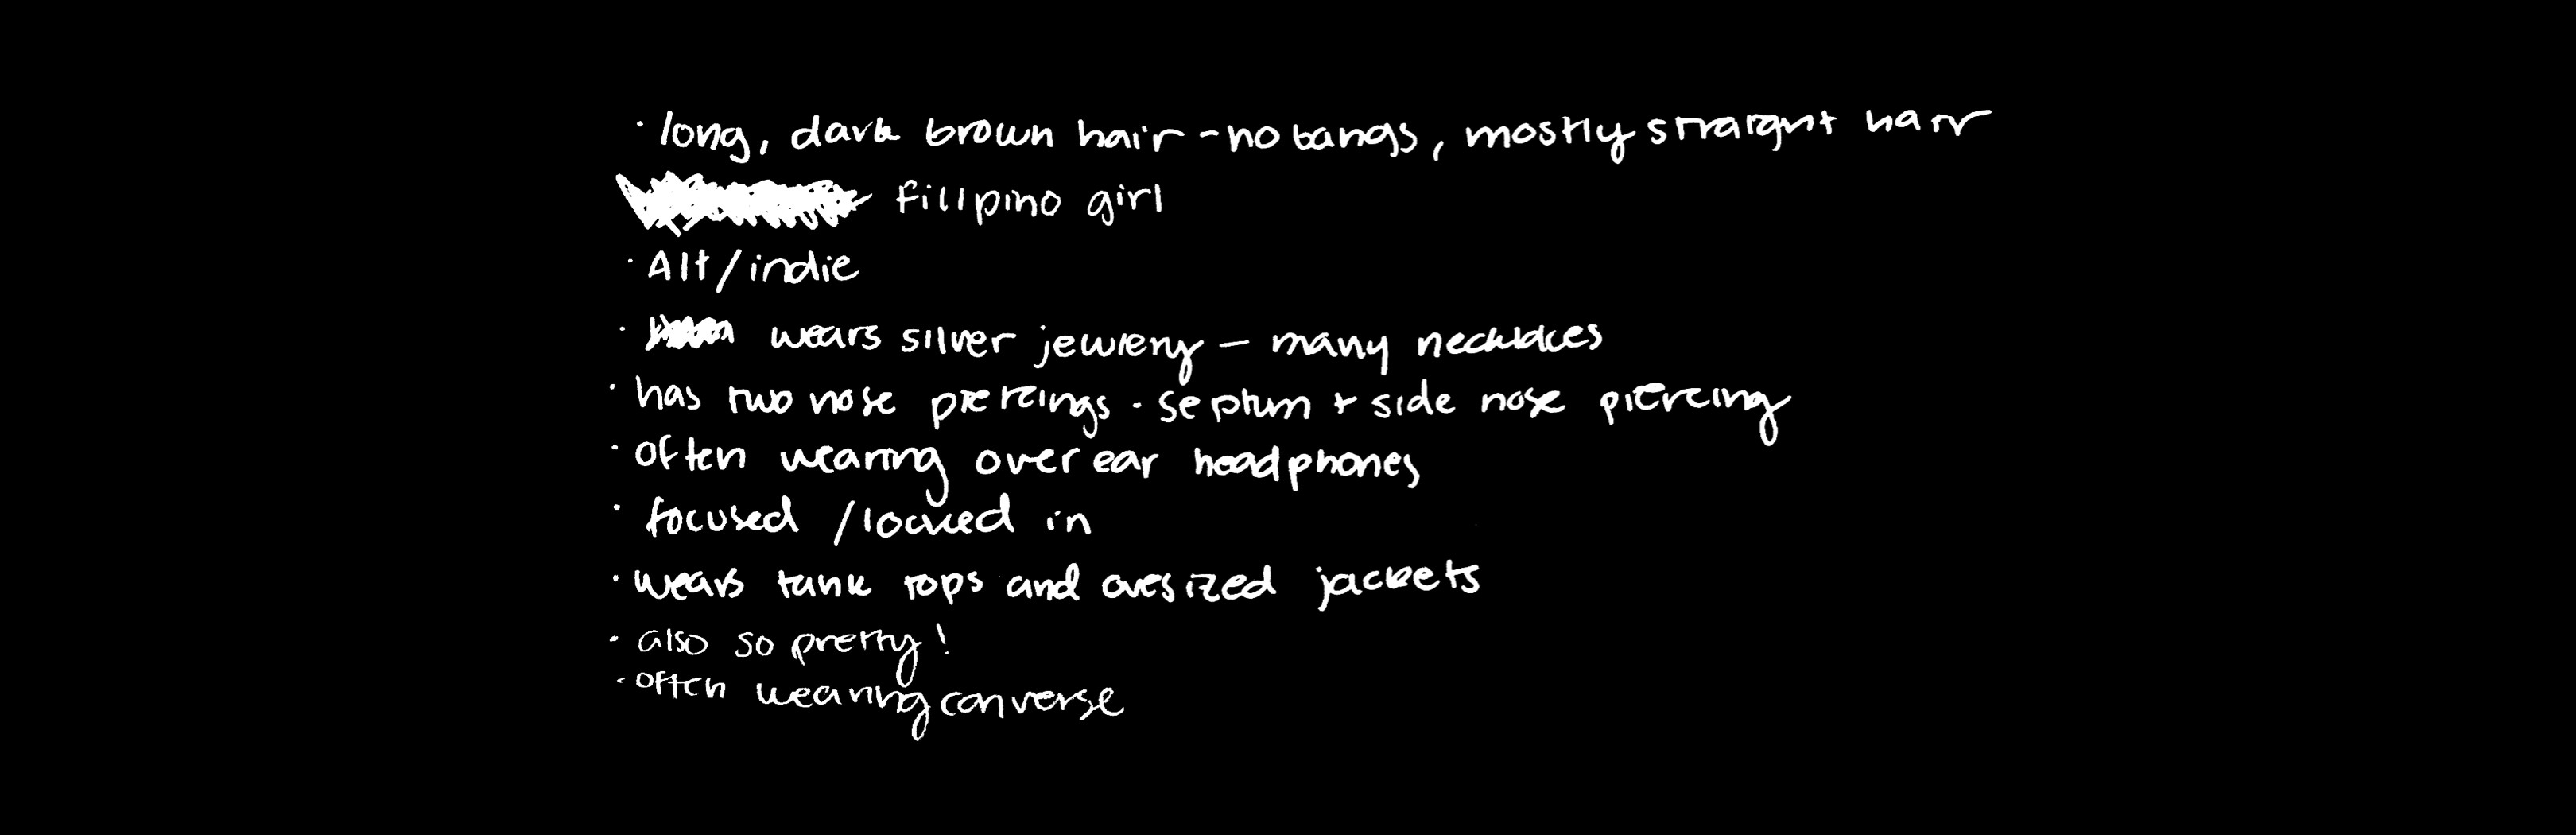 · long, dark brown hair - no bangs, mostly straight hair
fillpino girl
· Alt/indie
· wears silver jewlery – many necklaces
· has two nose piercings - septum + side nose piercing
· often wearing over ear headphones
· focused / locked in
· wears tank tops and oversized jackets
· also so pretty!
· often wearing converse